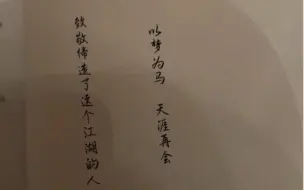 以梦为马 天涯再会
致敬缔造了这个江湖的人